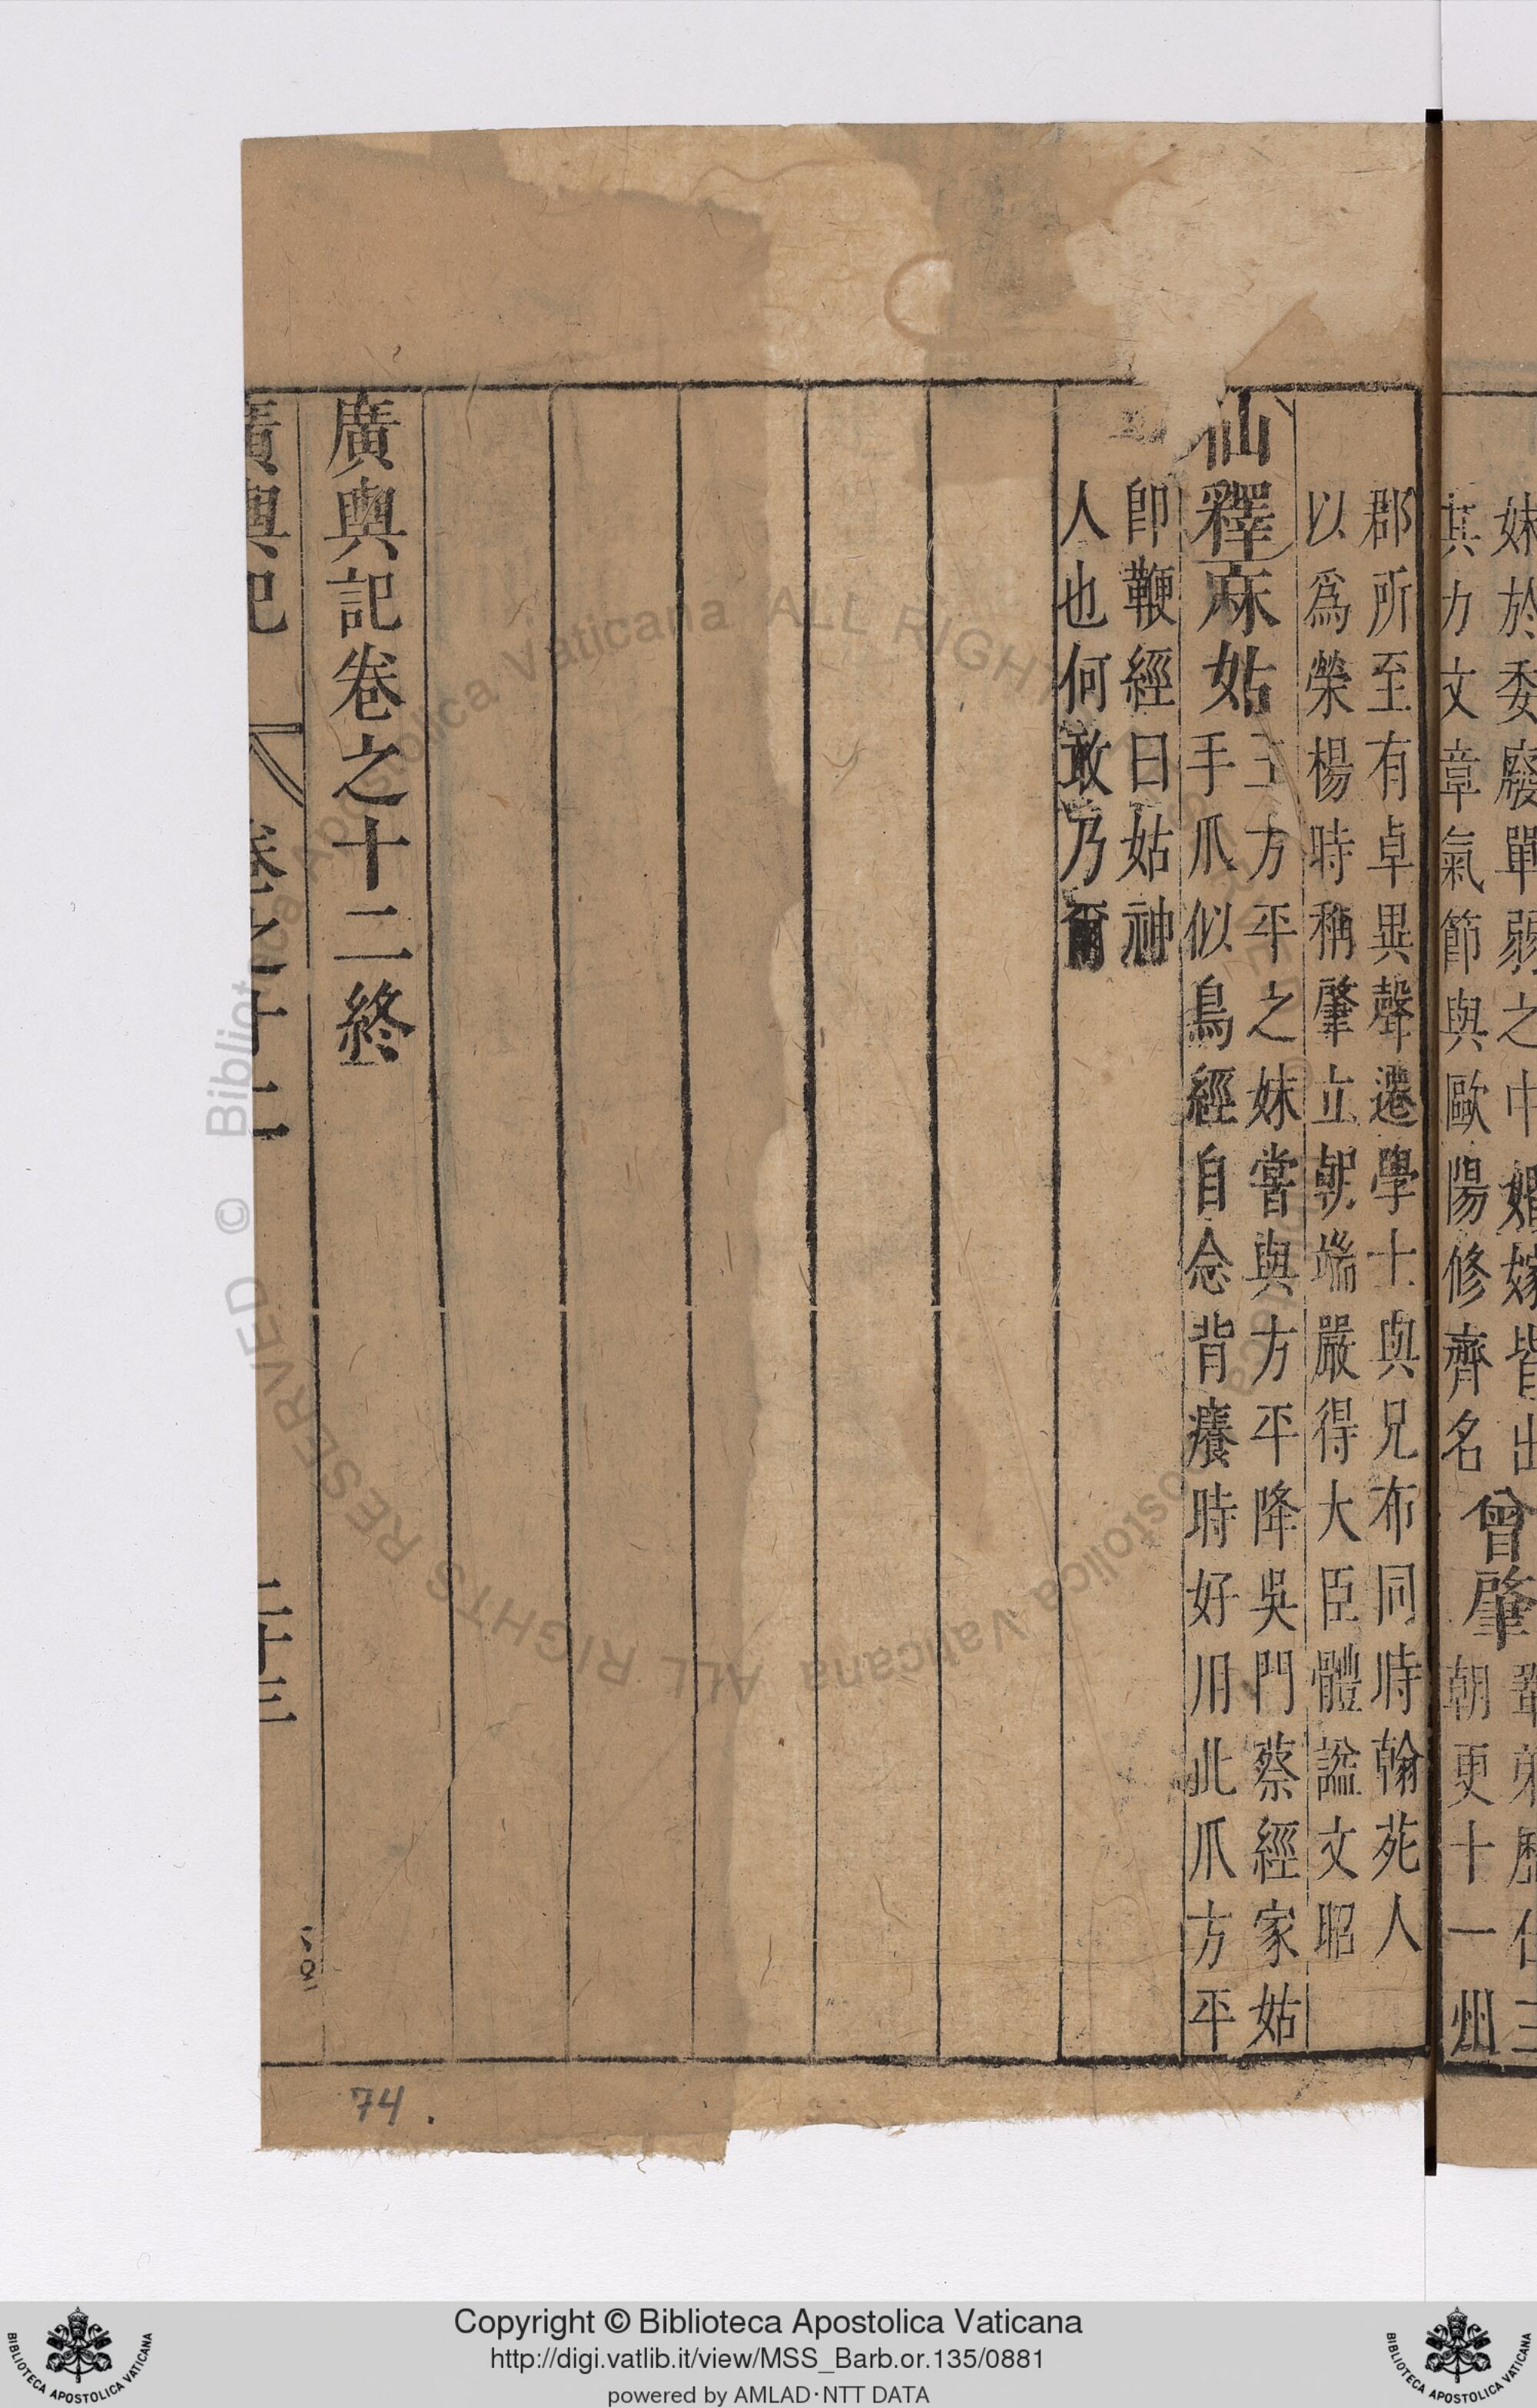 妹於委廢單弱之中婚嫁皆出
其力文章氣節與歐陽修齊名
曾肇
鞏弟歷仕三
朝更十一州
郡所至有卓異聲遷學士與兄布同時翰苑人
以爲榮楊時稱肇立朝端嚴得大臣體諡文昭
仙釋
麻姑
王方平之妹嘗與方平降吳門蔡經家姑
手爪似鳥經自念背癢時好用此爪爬方平
即鞭經曰姑神
人也何敢乃爾
廣輿記卷之十二終
廣輿記
卷之十二
二十三
74.
© Biblioteca Apostolica Vaticana ALL RIGHTS RESERVED
© Biblioteca Apostolica Vaticana ALL RIGHTS RESERVED
Copyright © Biblioteca Apostolica Vaticana
http://digi.vatlib.it/view/MSS_Barb.or.135/0881
powered by AMLAD·NTT DATA
BIBLIOTECA APOSTOLICA VATICANA
BIBLIOTECA APOSTOLICA VATICANA